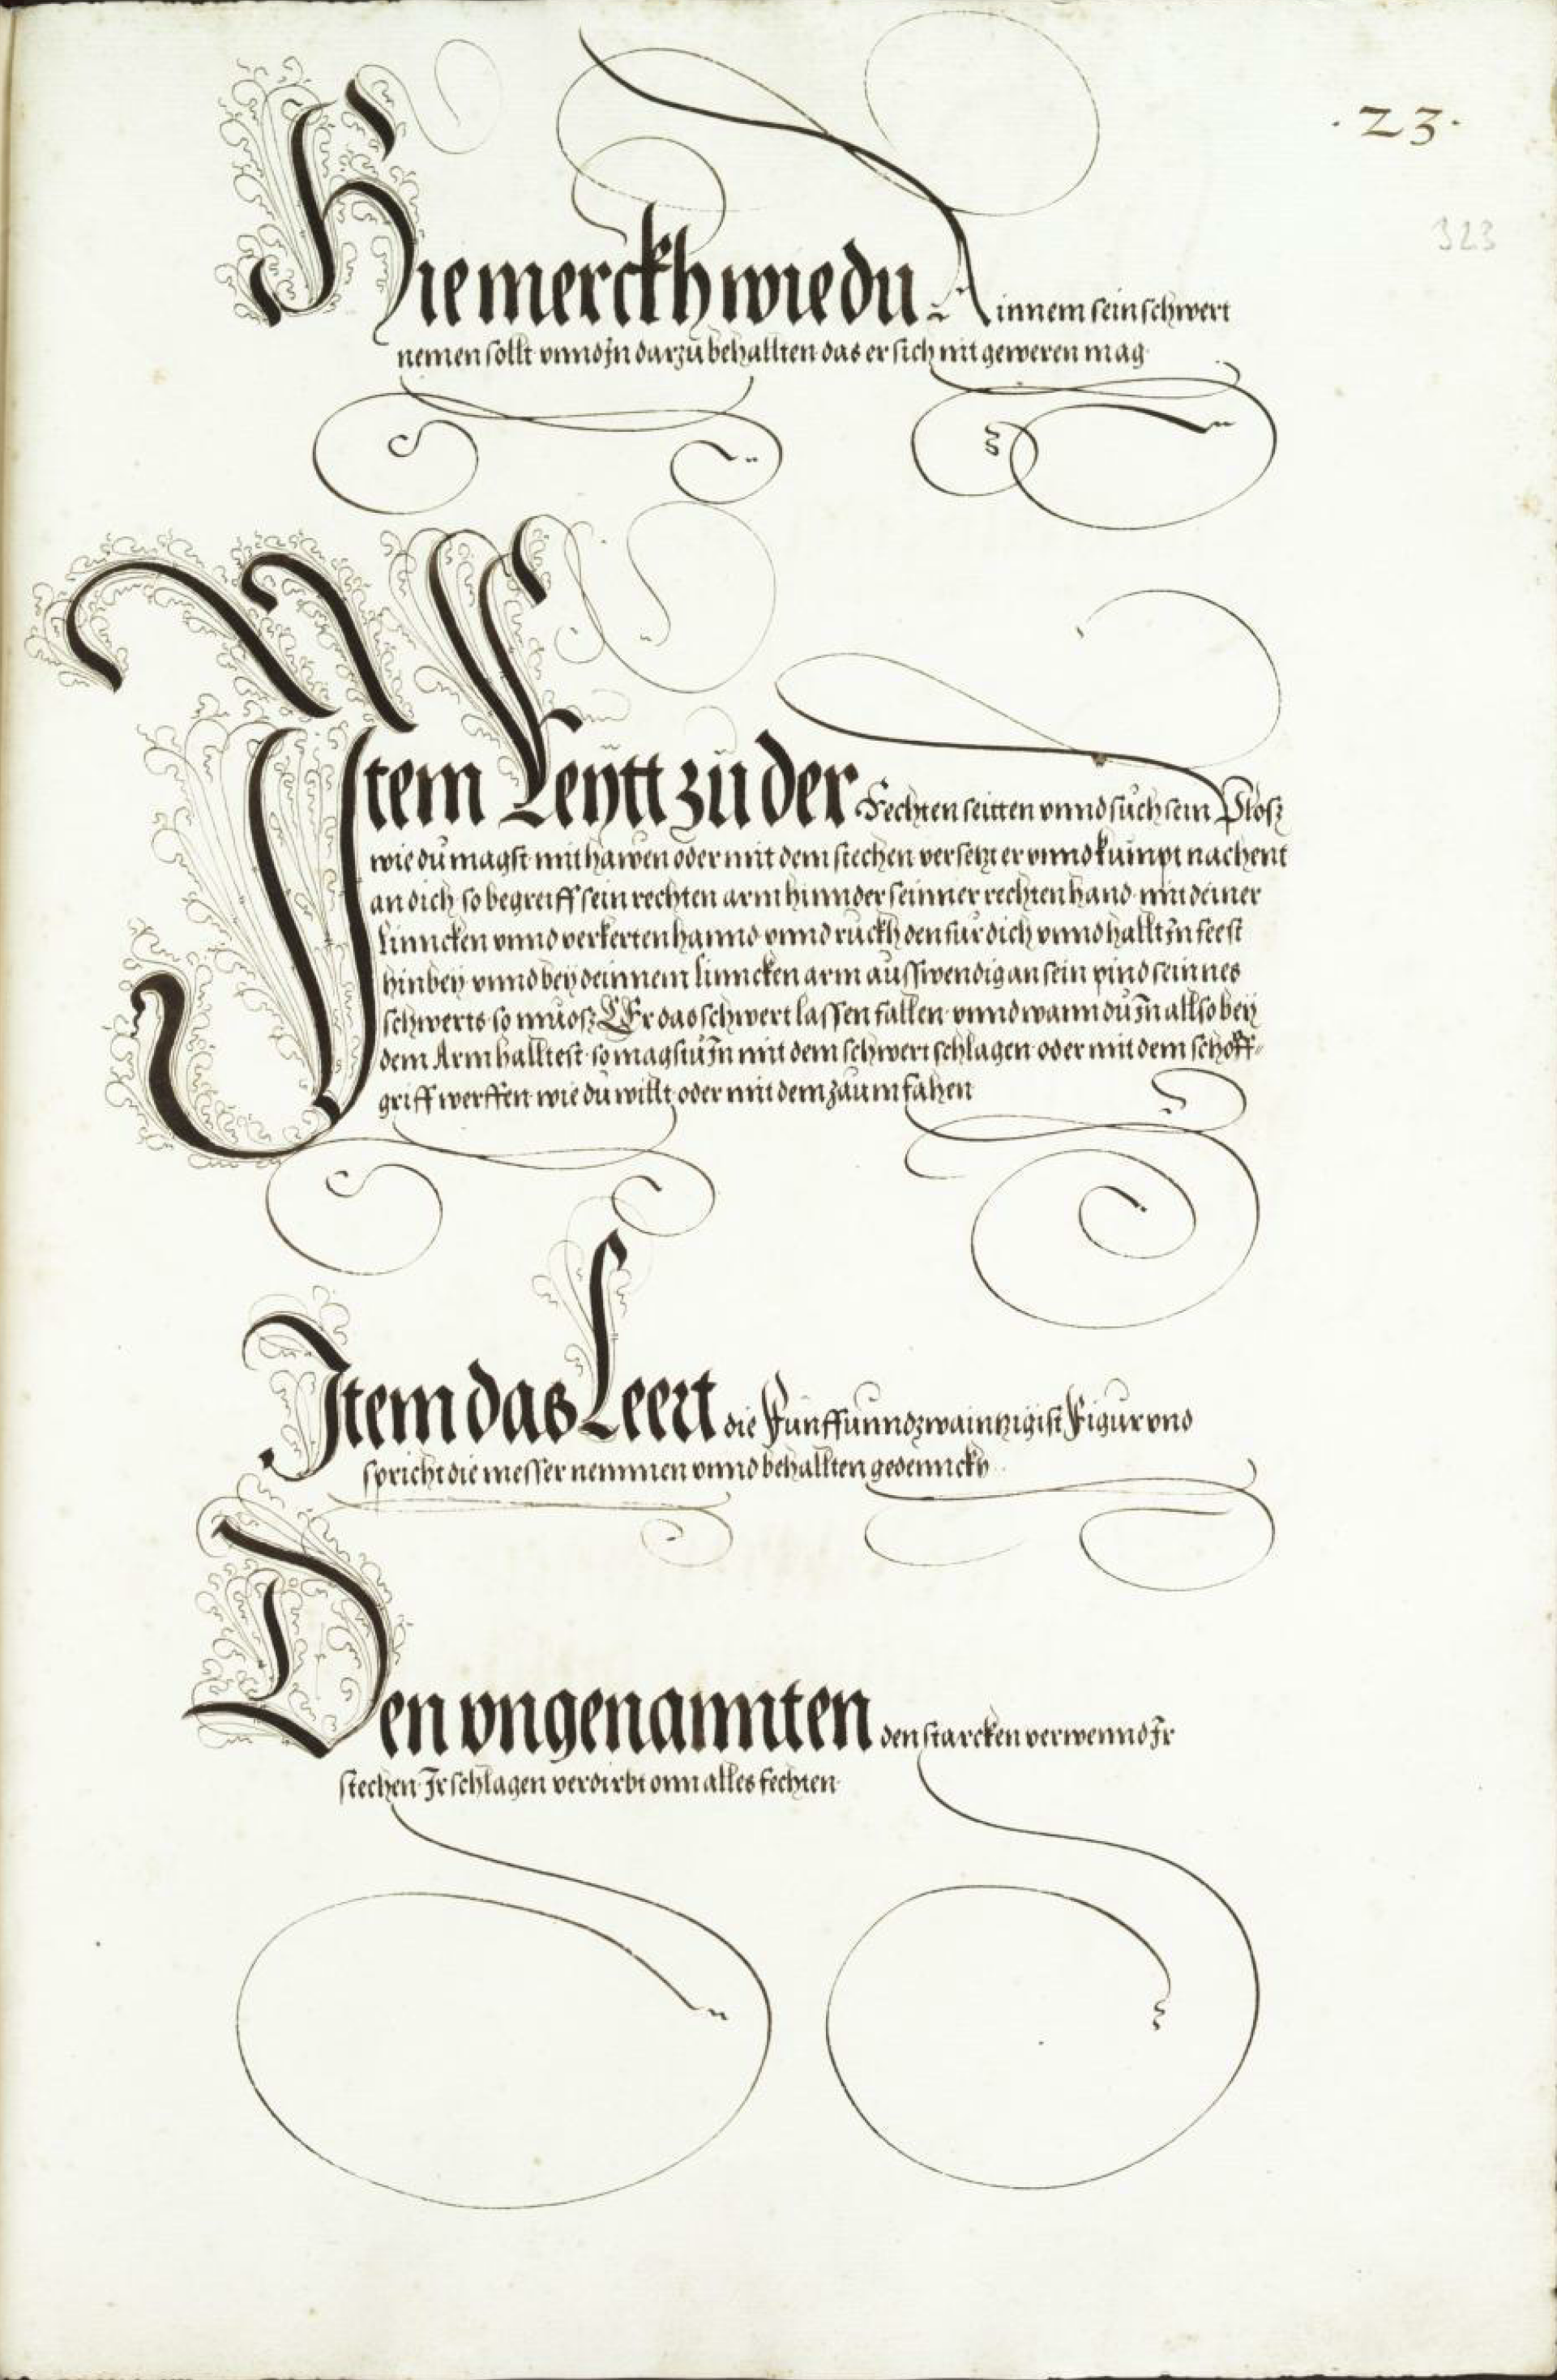 .23.
323
Hie merckh wie du Ainnem sein schwert
nemen sollt vnnd Jn darzů behallten das er sich nit geweren mag
Ytem Leytt zů der Rechten seitten vnnd sůch sein Plosz
wie dů magst mit hawen oder mit dem stechen versetzt er vnnd kumpt nachent
an dich so begreiff sein rechten arm hinnder seinner rechten hand mit deiner
linncken vnnd verkerten hannd vnnd ruckh den für dich vnnd hallt Jn feest
hinbey vnnd bey deinnem linncken arm ausswendig an sein pind seinnes
schwerts so můosz Er das schwert lassen fallen vnnd wann dů Jn allso bey
dem Arm halltest so magstů Jn mit dem schwert schlagen oder mit dem schoff-
griff werffen wie dů willt oder mit dem zaum fahen
Jtem das Leert die Funff unnd zwaintzigist Figur vnd
spricht die messer nemmen vnnd behallten gedennckh
Den vngenannten den starcken verwennd Jr
stechen Jr schlagen verdirbt onn alles fechten